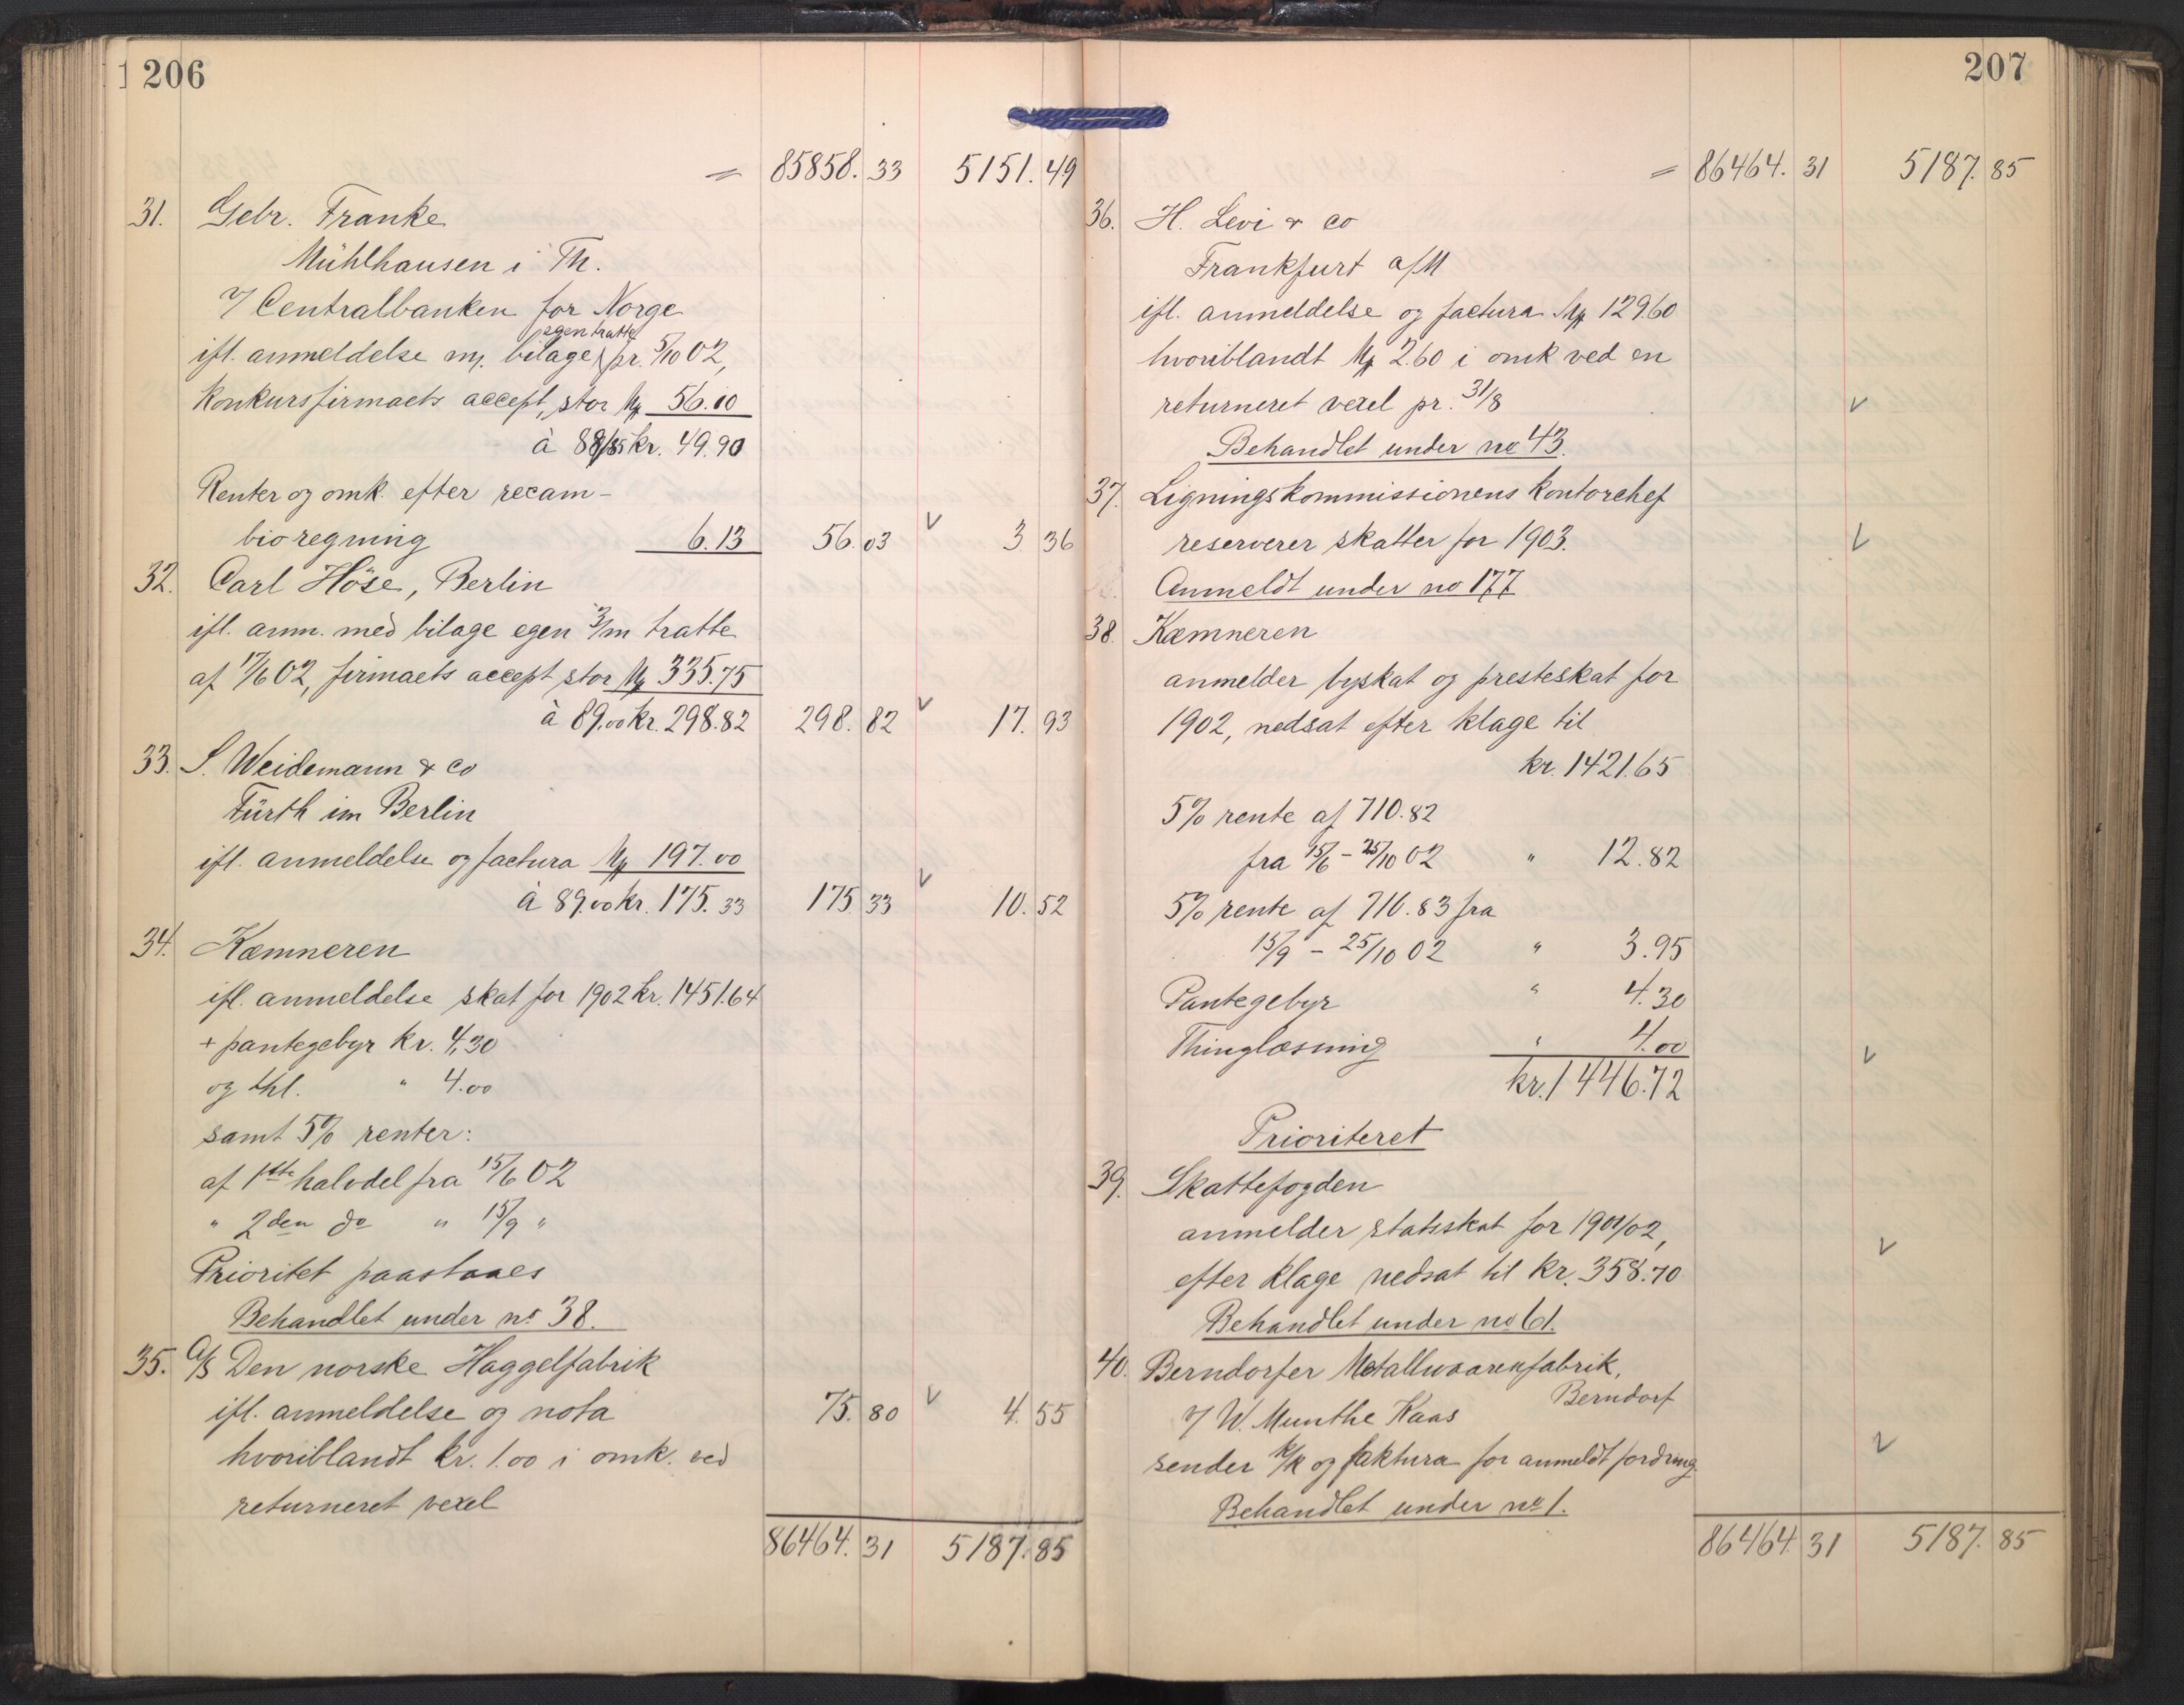 206
= 85858.33 5151.49
31. Gebr. Franke
Mühlhausen i Th.
v/ Centralbanken for Norge
egen tratte
ifl. anmeldelse m. bilage pr. 5/10 02,
konkursfirmaets accept, stor M 56.10
à 88/85 kr. 49.90
Renter og omk. efter recam-
bioregning 6.13 56.03 v 3 36
32. Carl Höse, Berlin
ifl. anm. med bilage egen 3/m tratte
af 17/6 02, firmaets accept stor M 335.75
à 89.00 kr. 298.82 298.82 v 17.93
33. S. Weidemann & Co
Fürth im Berlin
ifl. anmeldelse og factura M 197.00
à 89.00 kr. 175.33 175 33 v 10.52
34. Kæmneren
ifl. anmeldelse skat for 1902 kr. 1451.64
+ pantegebyr kr. 4.30
og thl. " 4.00
samt 5% renter:
af 1ste halvdel fra 15/6 02
" 2den do " 15/9 "
Prioritet paastaaes
Behandlet under no 38.
35. A/S Den norske Haggelfabrik
ifl. anmeldelse og nota 75.80 v 4.55
hvoriblandt kr. 1.00 i omk. ved
returneret vexel
86464.31 5187.85
207
= 86464.31 5187.85
36. H. Levi & Co
Frankfurt a/M
ifl. anmeldelse og factura M 129.60
hvoriblandt M 2.60 i omk ved en
returneret vexel pr. 31/8 v
Behandlet under no 43.
37. Ligningskommissionens kontorchef
reserverer skatter for 1903. v
Anmeldt under no 177
38. Kæmneren
anmelder byskat og presteskat for
1902, nedsat efter klage til
kr. 1421.65
5% rente af 710.82
fra 15/6 - 25/10 02 " 12.82
5% rente af 710.83 fra
15/9 - 25/10 02 " 3.95
Pantegebyr " 4.30
Thinglæsning " 4.00
kr. 1446.72 v
Prioriteret
39. Skattefogden
anmelder statsskat for 1901/02, v
efter klage nedsat til kr. 358.70
Behandlet under no 61.
40. Berndorfer Metallwaarenfabrik,
Berndorf
v/ W. Munthe Kaas
sender k/k og faktura for anmeldt fordring. v
Behandlet under no 1.
86464.31 5187.85